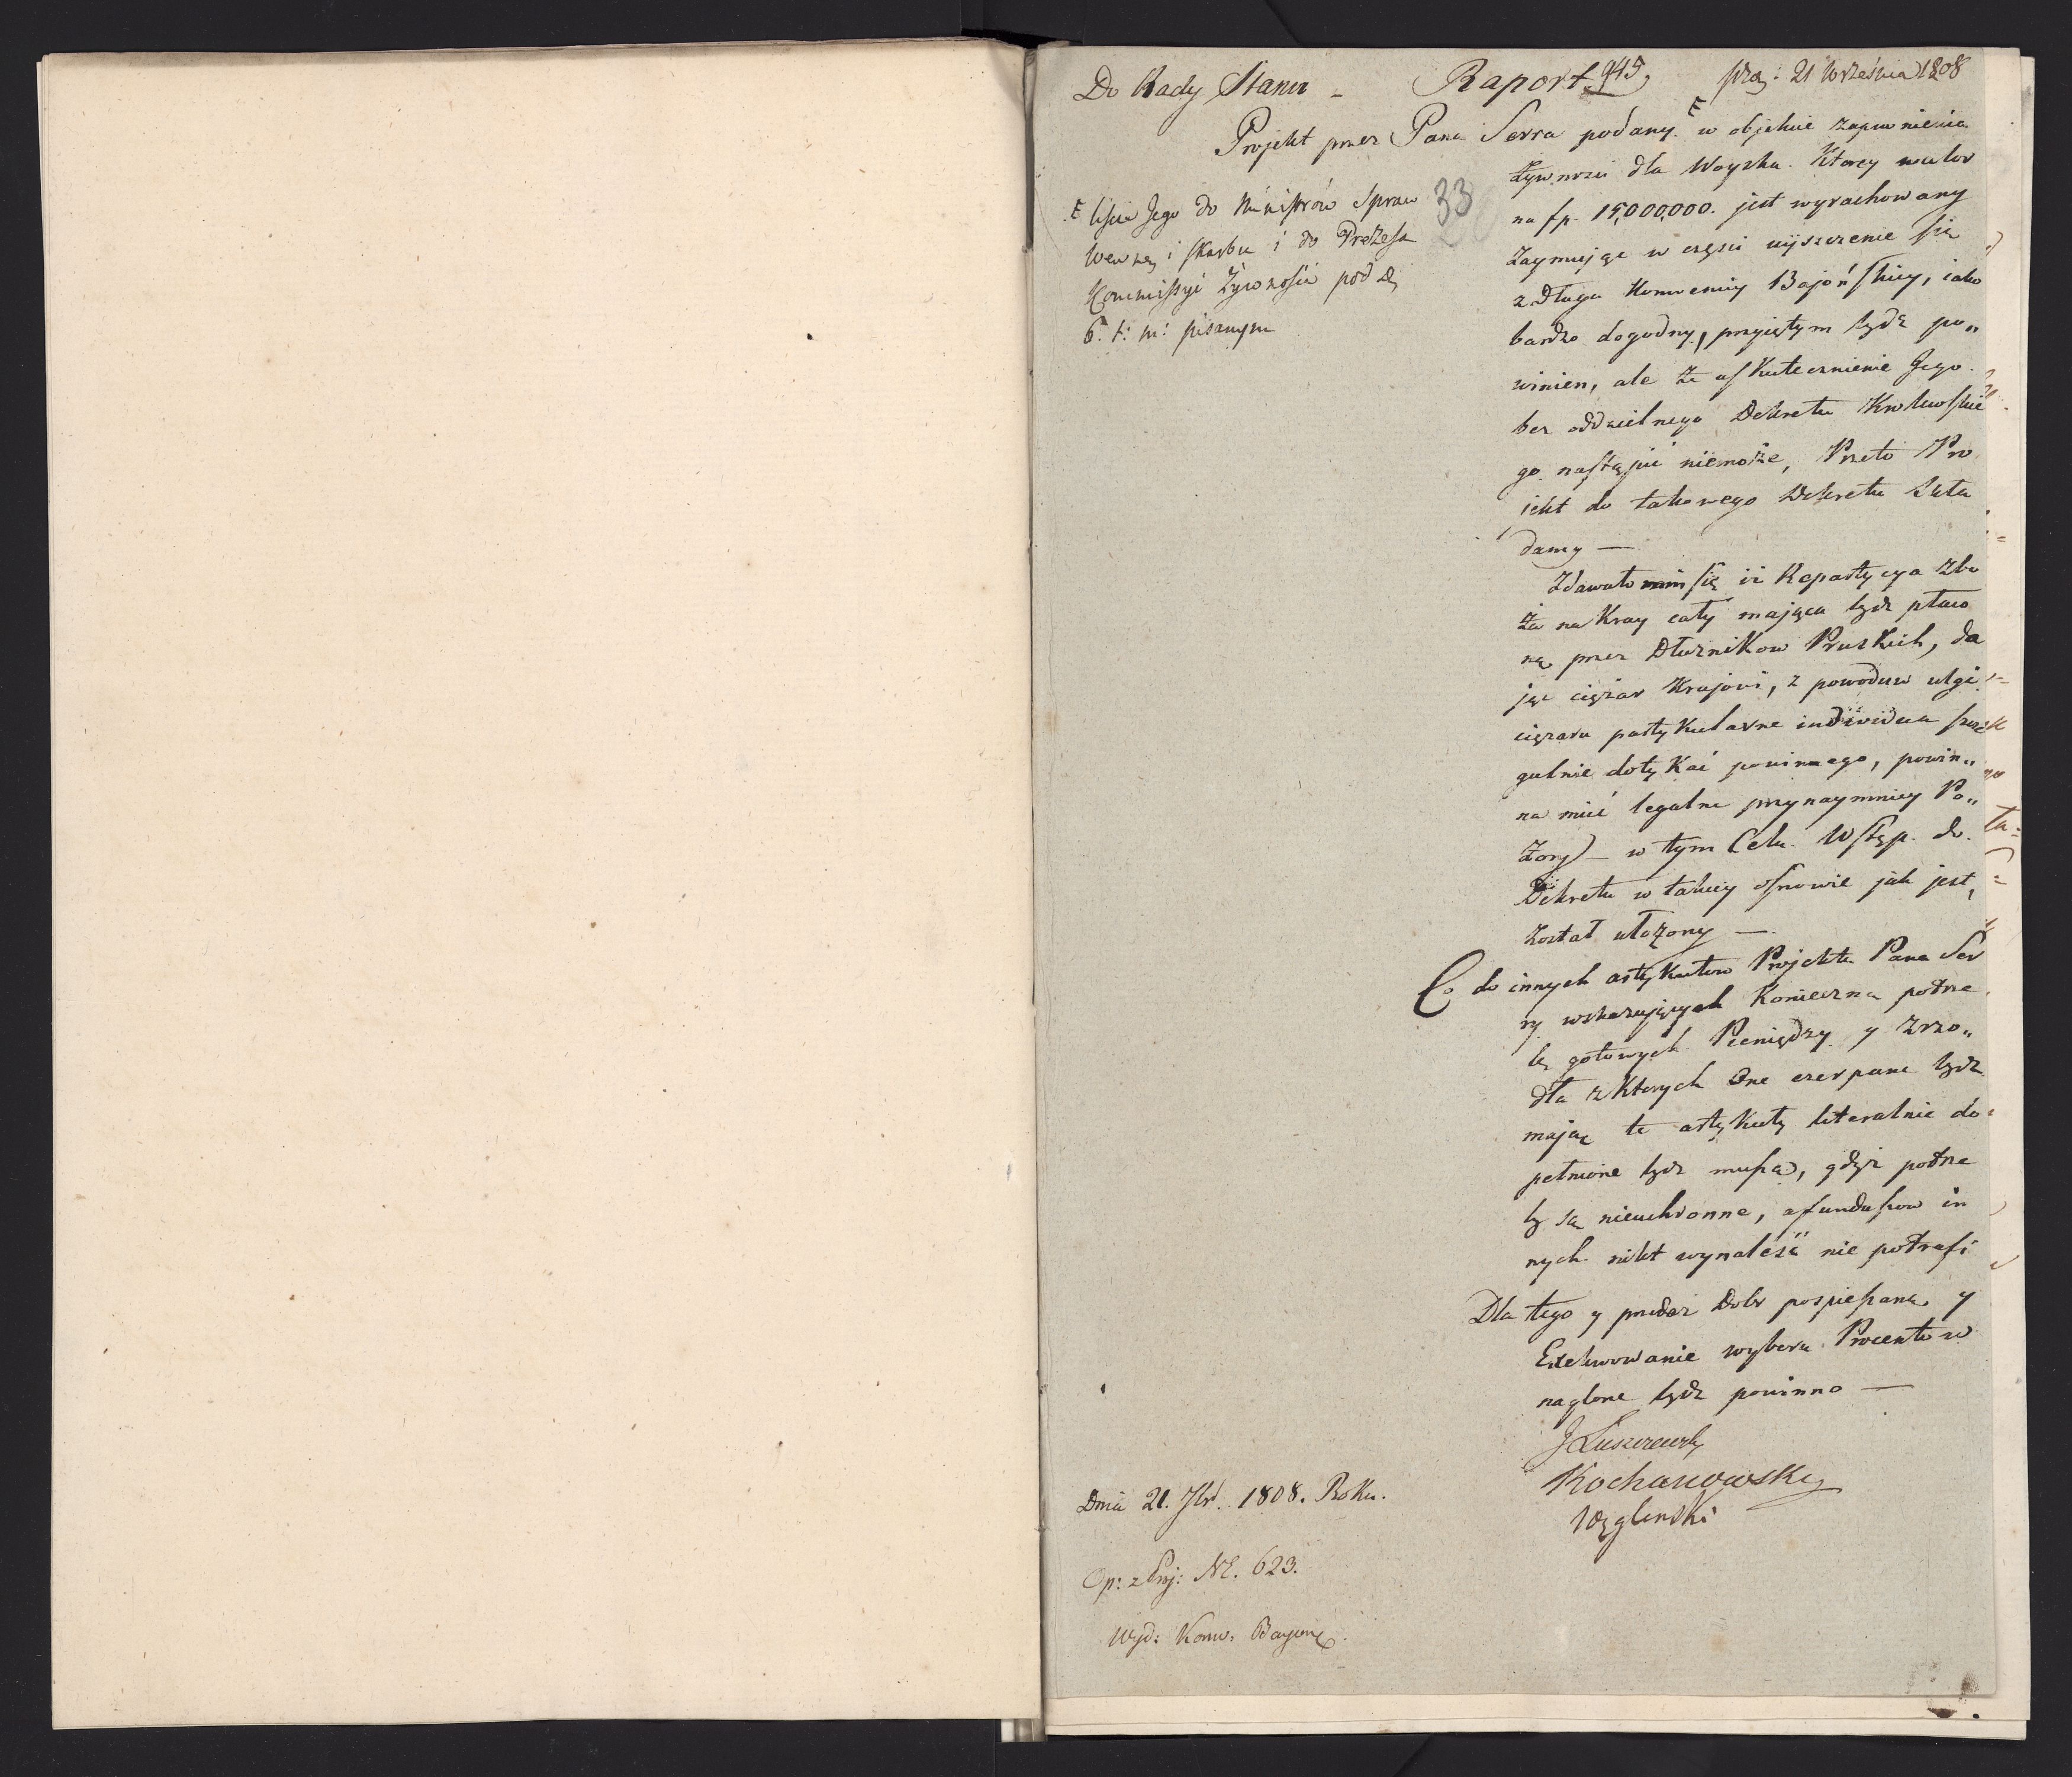 Do Rady Stanu - Raport 945, prze: 21 Września 1808
Projekt przez Pana Serra podany E w objekcie zapewnienia
żywnosci dla Woyska. Ktorey walor
na fp. 15,000,000. jest wyrachowany
Zaymując w częsci uiszczenie się
z Długu Konwencyi Bajońskiey, iako
bardzo dogodny, przyiętym bydź po„
winien, ale że uskutecznienie Jego
bez oddzielnego Dekretu Krolewskie
go nastąpić niemoże, Przeto Pro
iekt do takowego Dekretu Skła
damy —
E liście Jego do Ministrów Spraw
Wewnę i skarbu i do Prezesa
Kommissyi Żywności pod d.
6. t: m: pisanym
33
Zdawało się iż Repartycya Zbo
ża na Kray cały mająca bydź płaco
ną przez Dłużnikow Pruskich, da
jąc ciężar Krajowi, z powodów ulgi
ciężaru partykularne individua szcze
gulnie dotykać powinnego, powin„
na mieć legalne przynaymniey Po„
zory — w tym Celu Wstęp do
Dekretu w takiey osnowie jak jest,
został ułożony —
Co do innych artykułow Projektu Pana Ser
ry wskazujących Konieczną potrze
bę gotowych Pieniędzy y Zrzo„
dła z Ktorych One czerpane bydź
mają te artykuły literalnie do
pełnione bydź muszą, gdyż potrze
by są nieuchronne, a funduszow in
nych nikt wynaleść nie potrafi
Dla tego y przedaż Dobr pospieszana y
Exekwowanie wyboru Procentow
naglone bydź powinno —
J Łuszczewski
Kochanowski
Węgleński
Dnia 21. 7br. 1808. Roku.
Op: z Proj: No. 623.
Wyd: Konw: Bayonę.